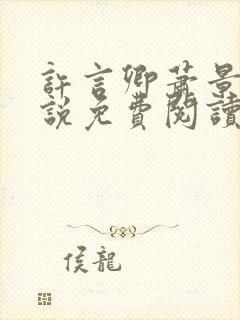 許言卿蕭景
說免費閱讀
侯龍